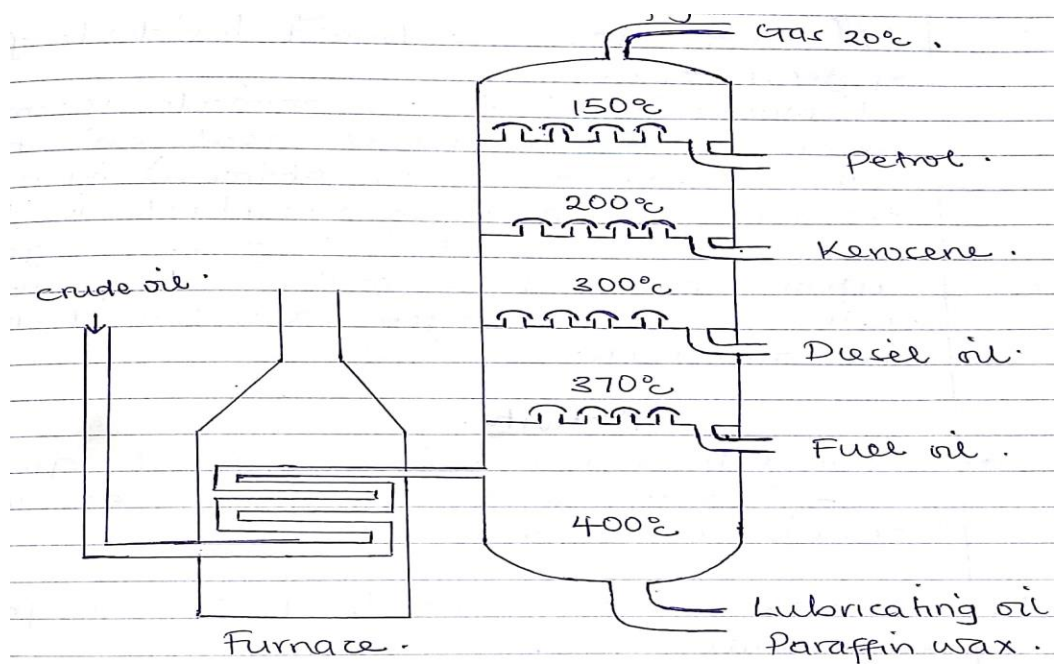 Gas 20°c .
150°c
Petrol .
200°c
Kerocene .
crude oil .
300°c
Diesel oil .
370°c
Fuel oil .
400°c
Lubricating oil
Paraffin wax .
Furnace .